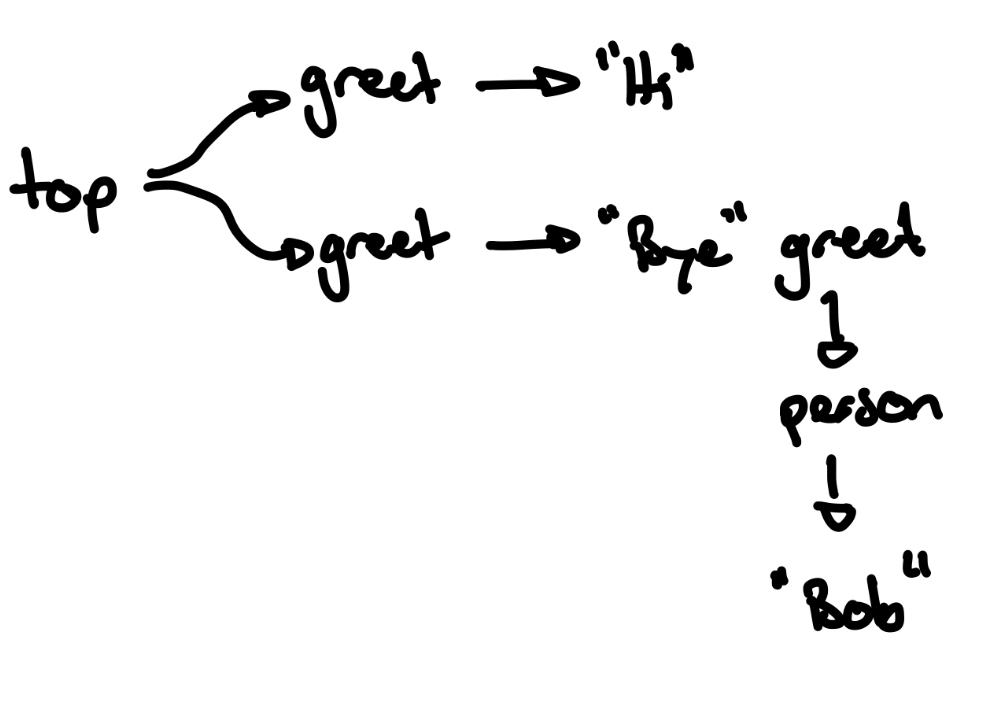 greet "Hi"
top
greet "Bye" greet
person
"Bob"